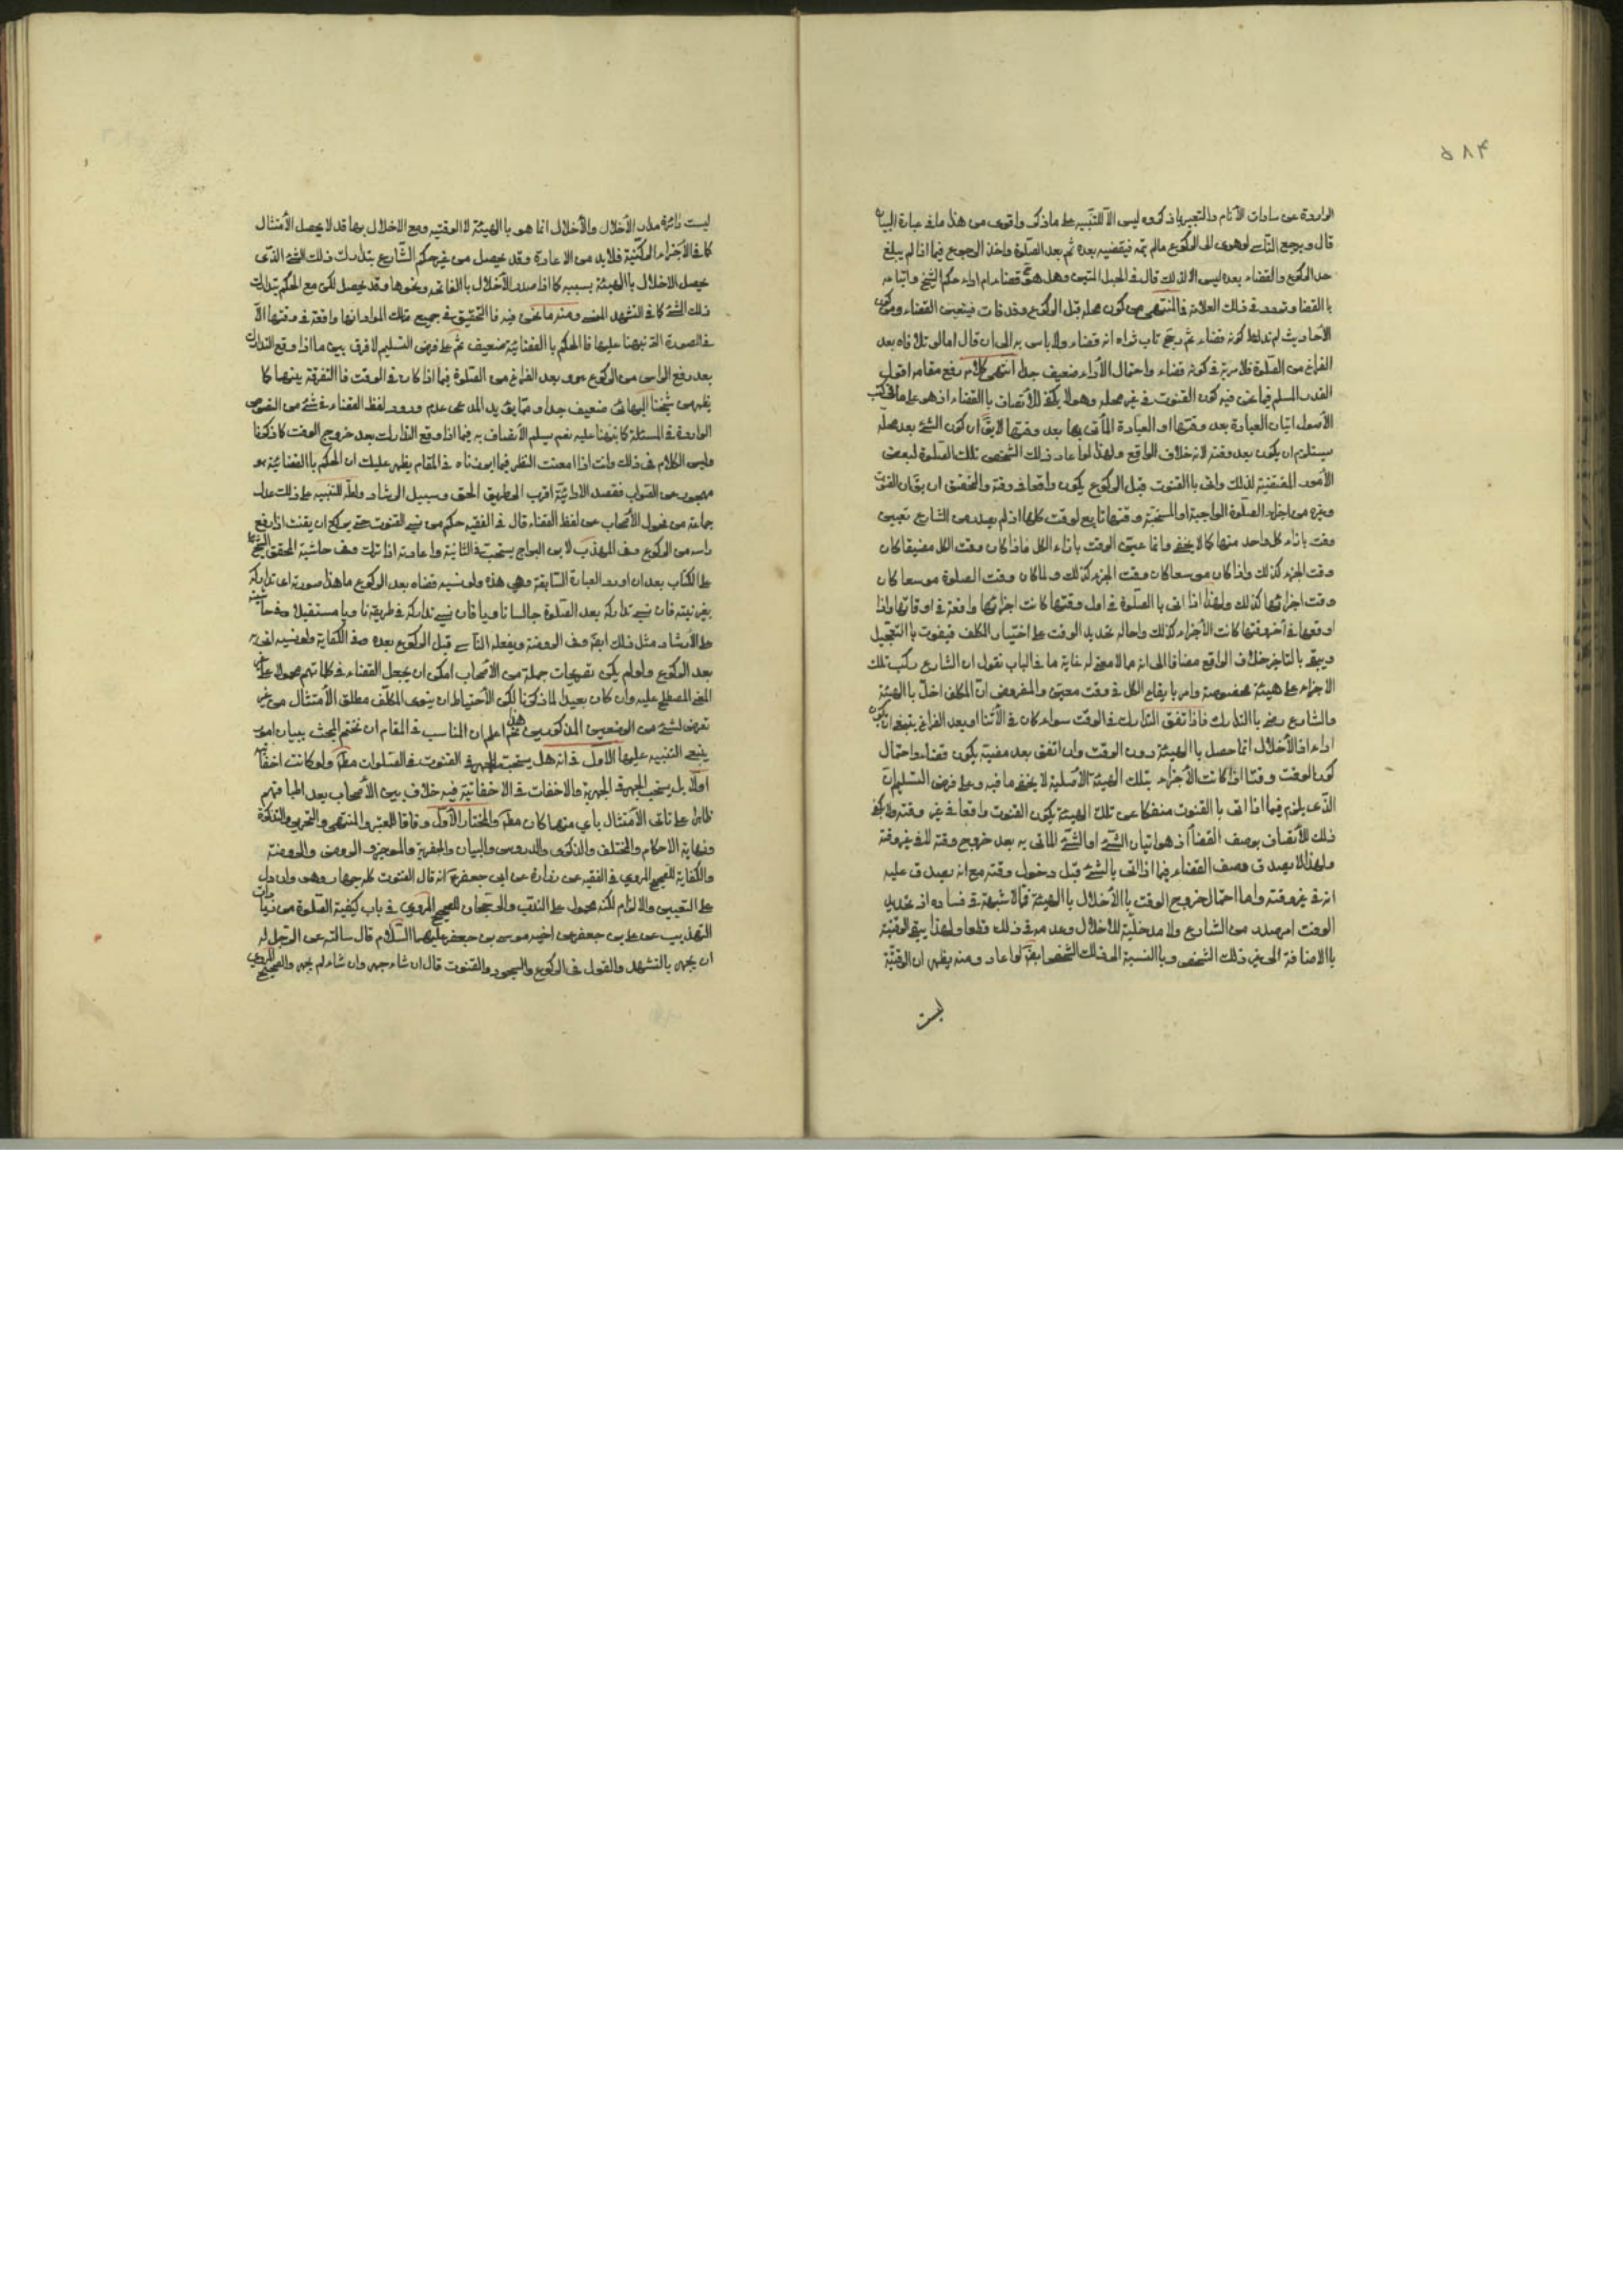 ۵۸۴
الواردة عن سادات الأنام والتعبير بما ذكروه ليس الا للتنبيه على ما ذكر واقوى من هذا ما في عبارة البيان
قال ويرجع الناسي لو هوى الى الركوع مالم يتمه فيقضيه بعده ثم بعد الصلوة واخذ الرجوع فيما اذا لم يبلغ
حد الركوع والقضاء بعده ليس الا لذلك قال في الحبل المتين وهل هو قضاء ام اداء حكم الشيخ واتباعه
بالقضاء وتردد في ذلك العلامة في المنتهى من كون محله قبل الركوع وقد فات فيتعين القضاء ومن كون
الأحاديث لم تدل على كونه قضاء ثم رجح تاب ثراه انه قضاء ولا باس به الى ان قال اما لو تلافاه بعد
الفراغ من الصلوة فلا ريب في كونه قضاء واحتمال الأداء ضعيف جدا انتهى كلامه رفع مقامه اقول
القدر المسلم فيما نحن فيه كون القنوت في غير محله وهو لا يكفي للأتصاف بالقضاء اذ هو على ما في كتب
الأصول اتيان العبادة بعد وقتها او العبادة المأتى بها بعد وقتها لا يقال ان كون الشئ بعد محله
يستلزم ان يكون بعد وقته لانه خلاف الواقع ولهذا لو اعاد ذلك الشخص تلك الصلوة لبعض
الأمور المقتضية لذلك واتى بالقنوت قبل الركوع يكون واقعا في وقته والتحقيق ان يقال ان القنوت
وغيره من اجزاء الصلوة الواجبة او المستحبة وقتها تابع لوقت كلها اذ لم يصدر من الشارع تعيين
وقت بازاء كل واحد منها كما لا يخفى وانما عين الوقت بازاء الكل فاذا كان وقت الكل مضيقا كان
وقت الجزء كذلك واذا كان موسعا كان وقت الجزء كذلك ولما كان وقت الصلوة موسعا كان
وقت اجزائها كذلك ولهذا اذا اتى بالصلوة في اول وقتها كانت اجزائها واقعة في اوقاتها واذا
اوقعها في آخر وقتها كانت الأجزاء كذلك واحالة تحديد الوقت على اختيار المكلف فيفوت بالتعجيل
ويبقى بالتاخير خلاف الواقع مضافا الى انه مما لا معنى له غاية ما في الباب نقول ان الشارع ركب تلك
الاجزاء على هيئة مخصوصة وامر بايقاع الكل في وقت معين والمفروض ان المكلف اخل بالهيئة
والشارع رضى بالتدارك فاذا اتفق التدارك في الوقت سواء كان في الأثناء او بعد الفراغ ينبغي ان يكون
اداء اذ الأخلال انما حصل بالهيئة دون الوقت وان اتفق بعد مضيه يكون قضاء واحتمال
كون الوقت وقتا اذا كانت الأجزاء بتلك الهيئة الأصلية لا يخفى ما فيه وعلى فرض التسليم ان
الذي يلزم فيما اذا اتى بالقنوت منفكا عن تلك الهيئة يكون القنوت واقعا في غير وقته ولا يكفي
ذلك للأتصاف بوصف القضاء اذ هو اتيان الشئ او الشئ المأتى به بعد خروج وقته لا في غير وقته
ولهذا لا يصدق وصف القضاء فيما اذا اتى بالشئ قبل دخول وقته مع انه يصدق عليه
انه في غير وقته واما احتمال خروج الوقت بالأخلال بالهيئة فمما لا شبهة في فساده اذ تحديد
الوقت امر صدر من الشارع ولا مدخلية للأخلال وعدمه في ذلك قطعا ولهذا يبقى الوقتية
بالاضافة الى غير ذلك الشخص وبالنسبة الى ذلك الشخص ايضا لو اعاد ومنه يظهر ان الوقتية
ليست
ليست دائرة مدار الأخلال والأخلال انما هو بالهيئة لا الوقتية ومع الاخلال بها قد لا يحصل الأمتثال
كما في الأجزاء الركنية فلا بد من الاعادة وقد يحصل من غير حكم الشارع بتدارك ذلك الشئ الذي
حصل الاخلال بالهيئة بسببه كما اذا صدر الأخلال بالفاتحة ونحوها وقد يحصل لكن مع الحكم بتدارك
ذلك الشئ كما في التشهد المنسي ومنه ما نحن فيه فالتحقيق في جميع تلك الموارد انها واقعة في وقتها الا
في الصورة التي نبهنا عليها فالحكم بالقضائية ضعيف ثم على فرض التسليم لا فرق بين ما اذا وقع التدارك
بعد رفع الراس من الركوع ومن بعد الفراغ من الصلوة فيما اذا كان في الوقت فالتفرقة بينهما كما
يظهر من شيخنا البهائي ضعيف جدا ومما يؤيد المدعى عدم ورود لفظ القضاء في شئ من النصوص
الواردة في المسئلة كما نبهنا عليه نعم يسلم الأتصاف به فيما اذا وقع التدارك بعد خروج الوقت كما ذكرنا
وليس الكلام في ذلك وانت اذا امعنت النظر فيما ابرزناه في المقام يظهر عليك ان الحكم بالقضائية
مهجور عن الصواب فقصد الأدائية اقرب الى طريق الحق وسبيل الرشاد ولعله للتنبيه على ذلك عدل
جماعة من فحول الأصحاب عن لفظ القضاء قال في الفقيه حكم من نسى القنوت حتى يركع ان يقنت اذا رفع
راسه من الركوع وفي المهذب لابن البراج يستحب في الثانية واعادته اذا ترك وفي حاشية المحقق الشيخ علي
على الكتاب بعد ان اورد العبارة السابقة وهي هذه ولو نسيه قضاه بعد الركوع ما هذا صورته اى تداركه
بغير نيته فان نسى تداركه بعد الصلوة جالسا ناويا فان نسى تداركه في طريقه ناويا مستقبلا وفي حاشيته
على الأرشاد مثل ذلك ايضا وفي الروضة ويفعله الناسي قبل الركوع بعده وفي الكفاية ولو نسيه اتى به
بعد الركوع ولو لم يكن تصريحات جملة من الأصحاب امكن ان يجعل القضاء في كلماتهم محمولا على غير
المعنى المصطلح عليه وان كان بعيدا لما ذكرنا لكن الأحتياط ان ينوى المكلف مطلق الأمتثال من غير
تعرض لشئ من الوضعين المذكورين هذا ثم اعلم ان المناسب في المقام ان نختم المبحث ببيان امور
ينبغي التنبيه عليها الأول في انه هل يستحب الجهر في القنوت في الصلوات مطلقا ولو كانت اخفاتية
اولا بل يستحب الجهر في الجهرية والاخفات في الاخفاتية فيه خلاف بين الأصحاب بعد اطباقهم
ظاهرا على تأتى الأمتثال بأي منهما كان مطلقا والمختار الأول وفاقا للمعتبر والمنتهى والتحرير والتذكرة
ونهاية الاحكام والمختلف والذكرى والدروس والبيان والجعفرية والموجز والروض والروضة
والكفاية للصحيح المروي في الفقيه عن زرارة عن ابي جعفر ع انه قال القنوت كله جهار وهو وان دل
على التعيين والالزام لكنه محمول على الندب والرجحان للصحيح المروي في باب كيفية الصلوة من زيادات
التهذيب عن علي بن جعفر عن اخيه موسى بن جعفر عليهما السلام قال سالته عن الرجل له
ان يجهر بالتشهد والقول في الركوع والسجود والقنوت قال ان شاء جهر وان شاء لم يجهر والصحيح المروي